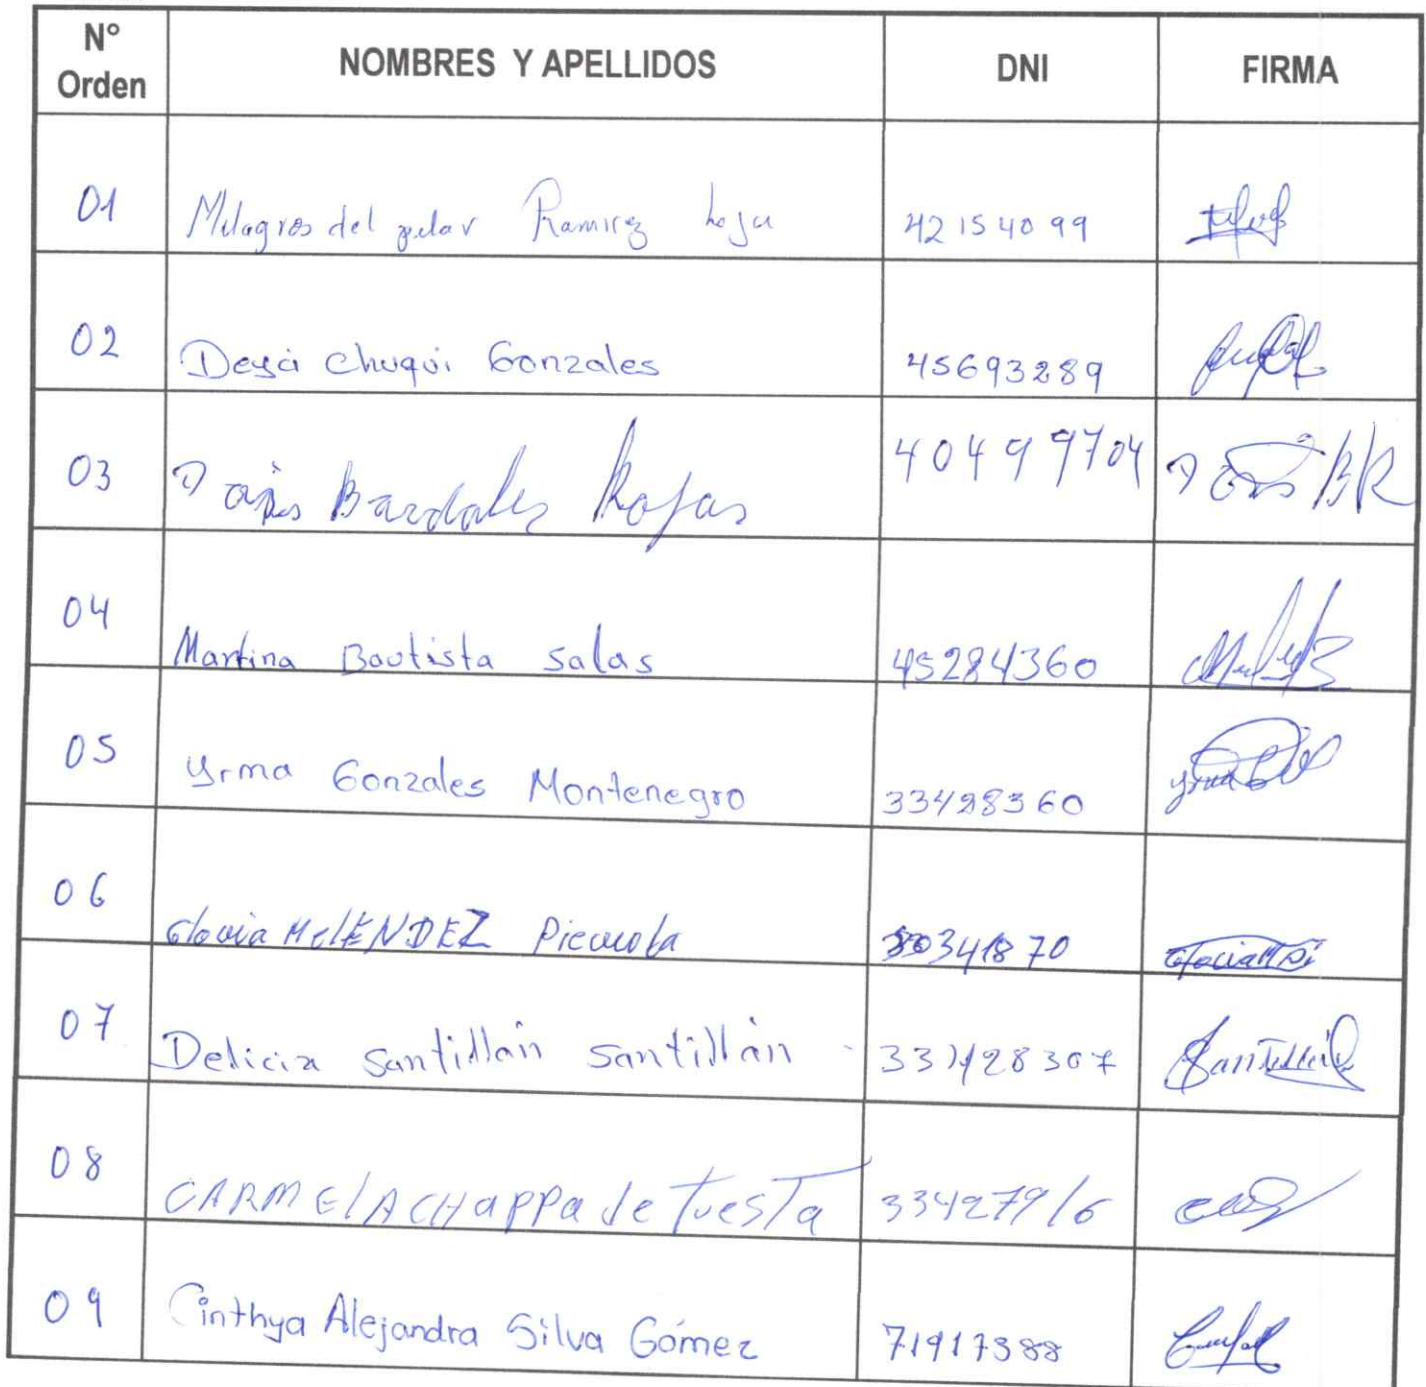 N° Orden NOMBRES Y APELLIDOS DNI FIRMA
01 Milagros del pilar Ramirez Loja 42154099
02 Deysi Chuqui Gonzales 45693289
03 Doris Bardales Rojas 40499704 Doris BR
04 Martina Bautista Salas 45284360
05 Yrma Gonzales Montenegro 33428360
06 Gloria MelENDEZ 341870
07 Delicia Santillán Santillán 33428307
08 CARMElA CHAPPa de TuesTa 33427916
09 Cinthya Alejandra Silva Gómez 71917388